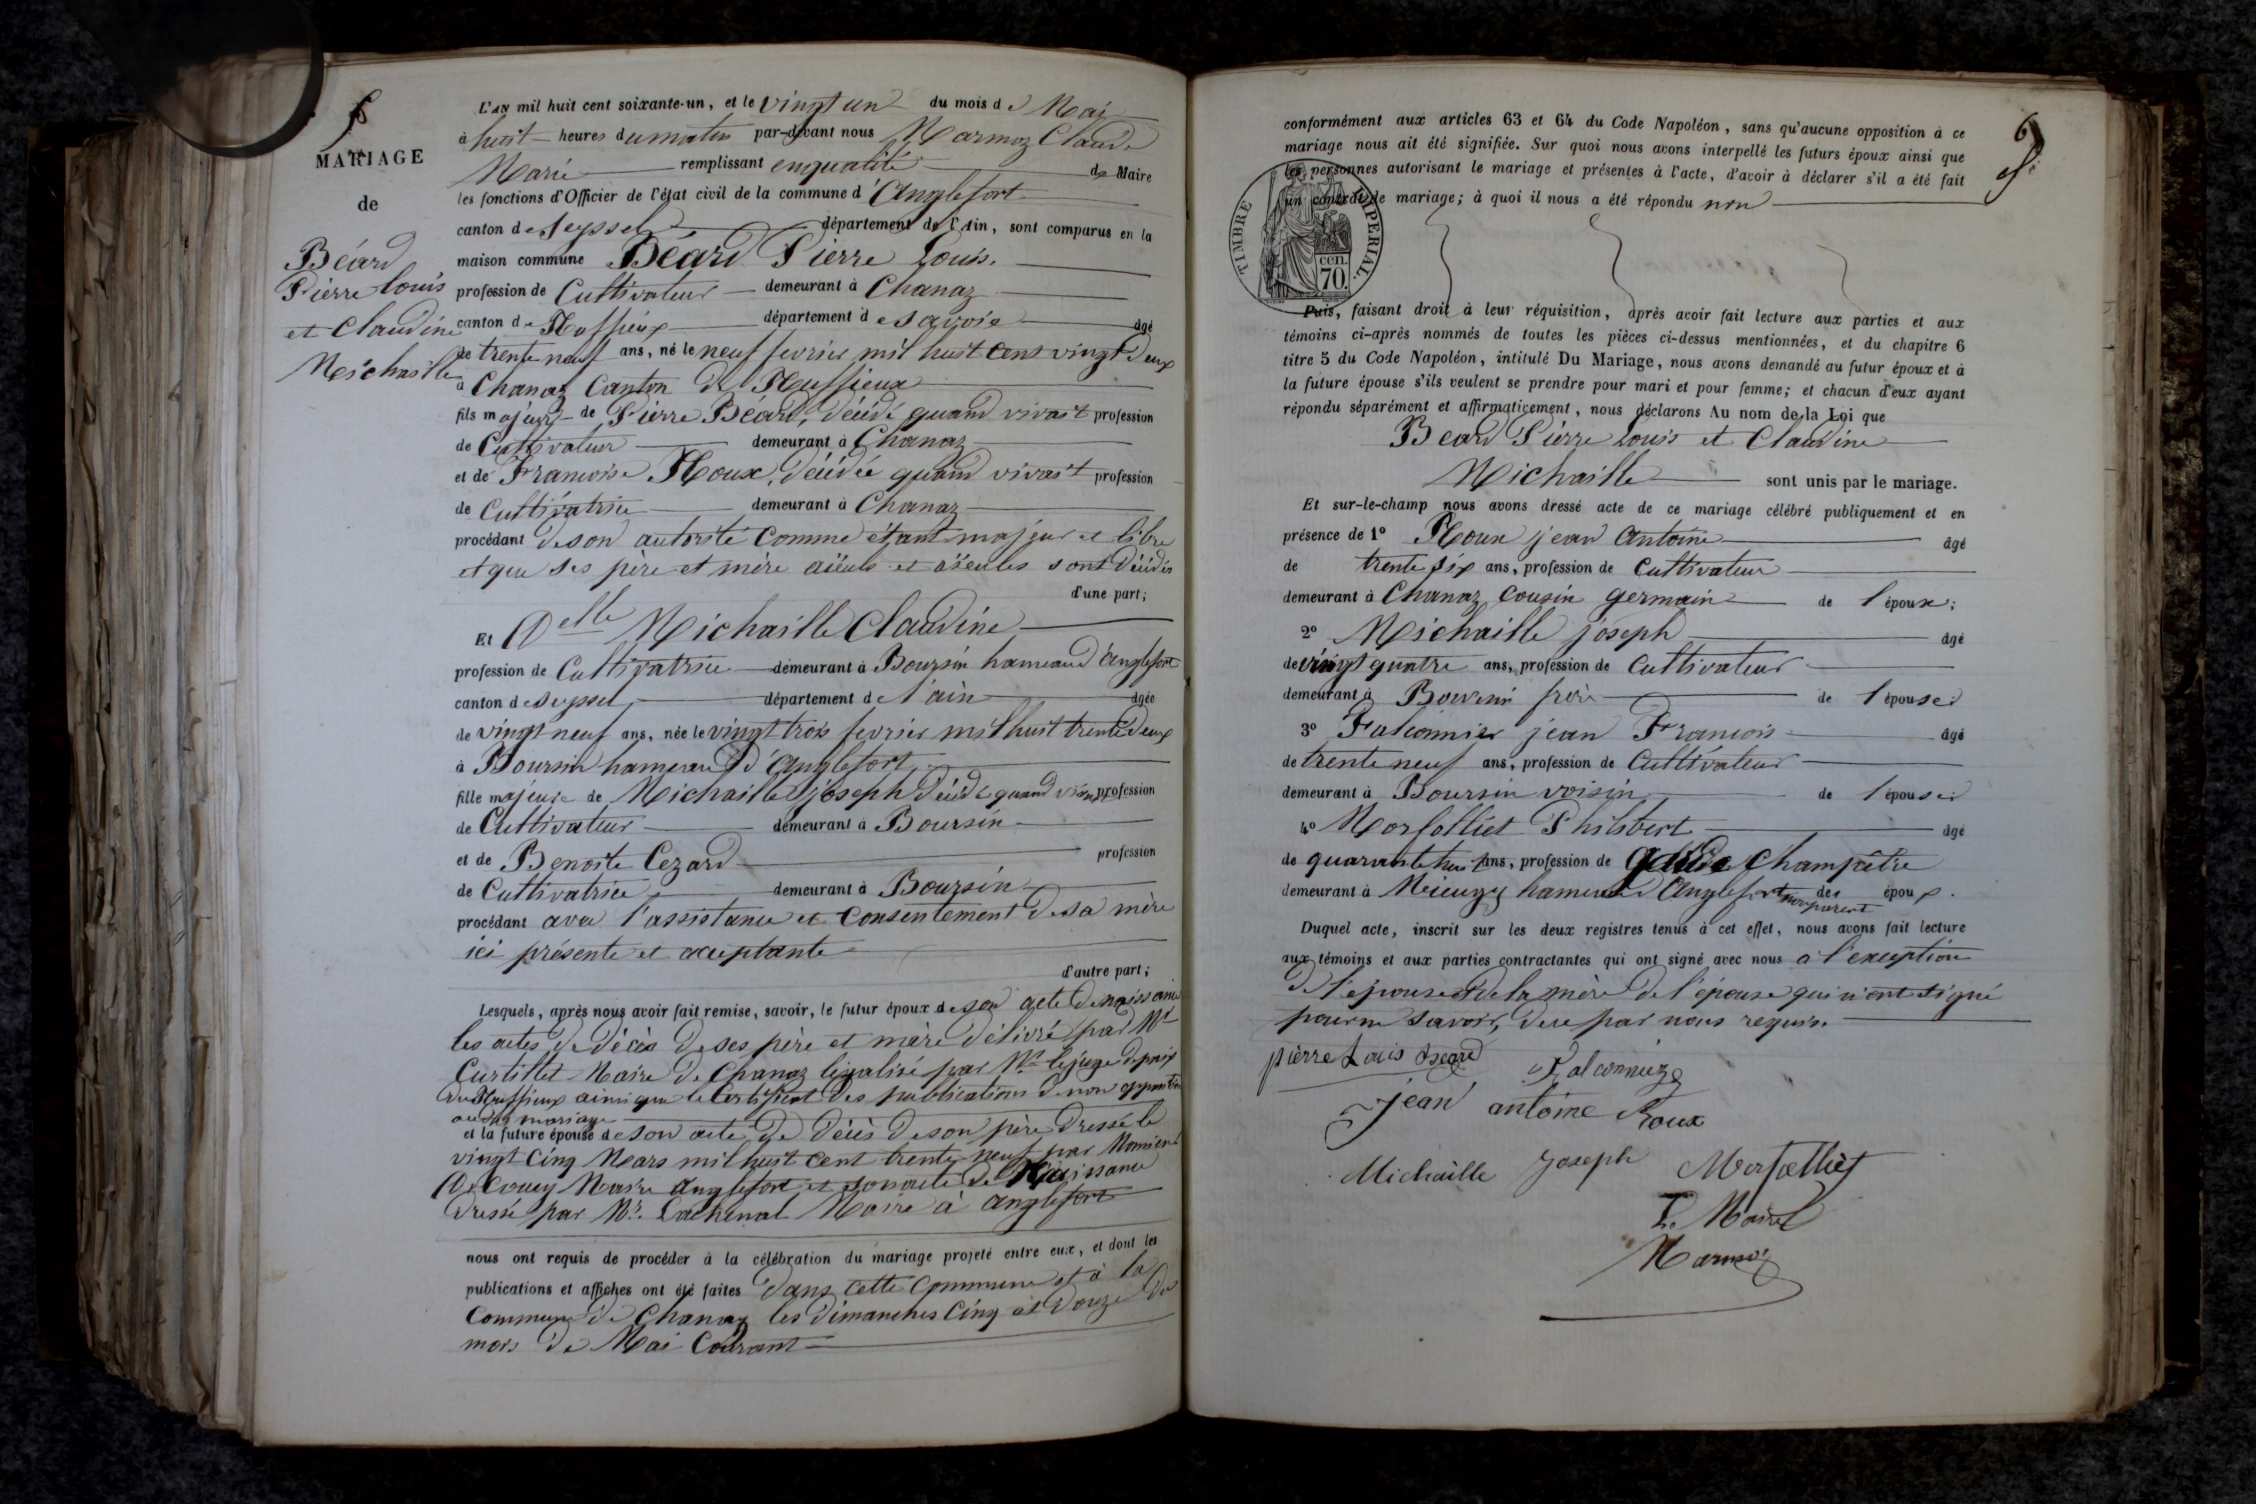 MARIAGE
de
Béard
Pierre Louis
et Claudine
Michaille
L'AN mil huit cent soixante-un, et le vingt un du mois de Mai
à huit heures du matin par-devant nous Marmoz Claude
Marie remplissant en qualité de Maire
les fonctions d'Officier de l'état civil de la commune d'Anglefort
canton de Seyssel département de l'Ain, sont comparus en la
maison commune Béard Pierre Louis
profession de Cultivateur demeurant à Chanaz
canton de Ruffieux département de Savoie âgé
de trente neuf ans, né le neuf fevrier mil huit cent vingt deux
à Chanaz Canton de Ruffieux
fils majeur de Pierre Béard, décédé quand vivait profession
de Cultivateur demeurant à Chanaz
et de Francoise Roux, décédée quand vivait profession
de Cultivatrice demeurant à Chanaz
procédant de son autorité comme étant majeur et libre
et que ses père et mère aïeuls et aïeules sont décédés
d'une part;
Et Delle Michaille Claudine
profession de Cultivatrice demeurant à Boursin hameau d'anglefort
canton de Seyssel département de l'ain âgée
de vingt neuf ans, née le vingt trois fevrier mil huit trente deux
à Boursin hameau d'anglefort
fille majeure de Michaille joseph décédé quand vivait profession
de Cultivateur demeurant à Boursin
et de Benoite Cezard profession
de Cultivatrice demeurant à Boursin
procédant avec l'assistance et consentement de sa mère
ici présente et acceptante
d'autre part;
Lesquels, après nous avoir fait remise, savoir, le futur époux de son acte de naissance
les actes de décès de ses père et mère délivré par Mr
Curtillet Maire de Chanaz légalisé par Mr le juge de paix
de Ruffieux ainsi que le Certificat des publications de non opposition
au dit mariage
et la future épouse de son acte de décès de son père dressé le
vingt cinq Mars mil huit cent trente neuf par
Maire anglefort et son acte de Naissance
dressé par Mr. Lachenal Maire à anglefort
nous ont requis de procéder à la célébration du mariage projeté entre eux, et dont les
publications et affiches ont été faites dans cette commune et à la
commune de Chanaz les dimanches cinq et douze du
mois de Mai Courant
6
conformément aux articles 63 et 64 du Code Napoléon, sans qu'aucune opposition à ce
mariage nous ait été signifiée. Sur quoi nous avons interpellé les futurs époux ainsi que
les personnes autorisant le mariage et présentes à l'acte, d'avoir à déclarer s'il a été fait
un contrat de mariage; à quoi il nous a été répondu non
TIMBRE IMPERIAL.
cen.
70.
Puis, faisant droit à leur réquisition, après avoir fait lecture aux parties et aux
témoins ci-après nommés de toutes les pièces ci-dessus mentionnées, et du chapitre 6
titre 5 du Code Napoléon, intitulé Du Mariage, nous avons demandé au futur époux et à
la future épouse s'ils veulent se prendre pour mari et pour femme; et chacun d'eux ayant
répondu séparément et affirmativement, nous déclarons Au nom de la Loi que
Beard Pierre Louis et Claudine
Michaille sont unis par le mariage.
Et sur-le-champ nous avons dressé acte de ce mariage célébré publiquement et en
présence de 1º Roux jean Antoine âgé
de trente six ans, profession de Cultivateur
demeurant à Chanaz cousin germain de l'époux;
2º Michaille joseph âgé
de vingt quatre ans, profession de Cultivateur
demeurant à Boursin frère de l'épouse;
3º Falconnier jean Francois âgé
de trente neuf ans, profession de Cultivateur
demeurant à Boursin voisin de l'épouse;
4º Morfolliet Philibert âgé
de quarante huit ans, profession de garde Champêtre
demeurant à Mieugy hameau d'Anglefort non parent des époux.
Duquel acte, inscrit sur les deux registres tenus à cet effet, nous avons fait lecture
aux témoins et aux parties contractantes qui ont signé avec nous à l'exception
de l'épouse et de la mère de l'épouse qui n'ont signé
pour ne savoir, de ce par nous requis.
pierre Louis Beard
Falconnier
jean antoine Roux
Michaille Joseph Morfolliet
Le Maire
Marmoz